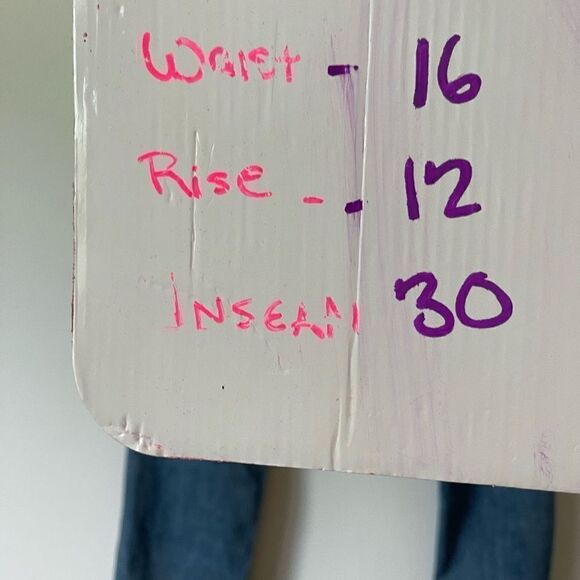 Waist - 16
Rise - - 12
INSEAM 30